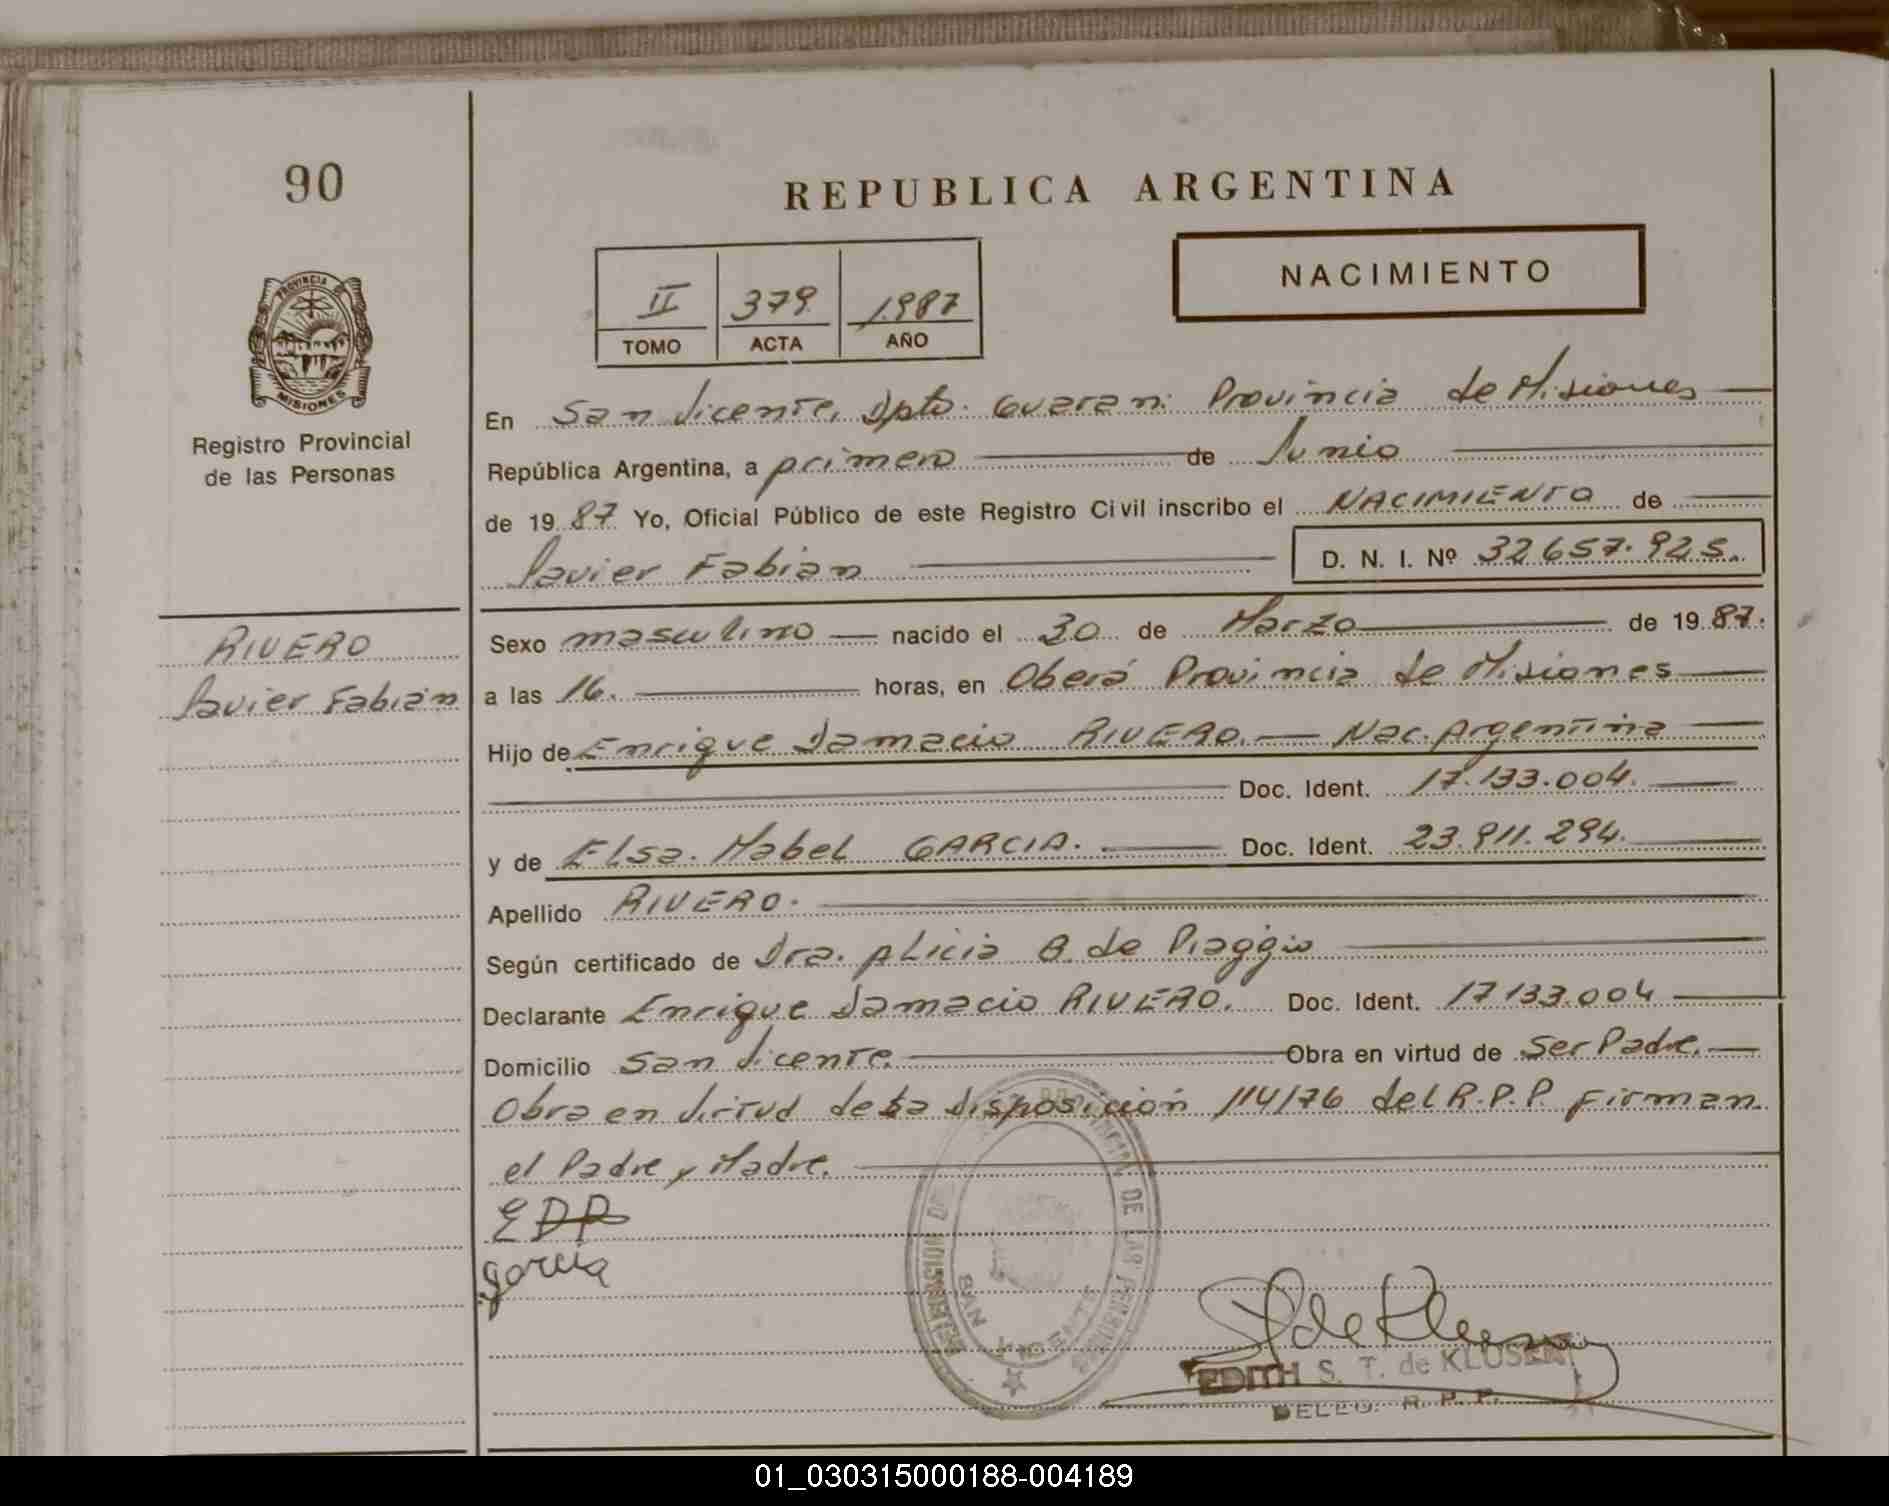 90
REPUBLICA ARGENTINA
NACIMIENTO
II 379 1987
TOMO ACTA AÑO
PROVINCIA
MISIONES
Registro Provincial
de las Personas
En San Vicente, Dpto. Guarani Provincia de Misiones
República Argentina, a primero de Junio
de 1987 Yo, Oficial Público de este Registro Civil inscribo el NACIMIENTO de
Javier Fabian D. N. I. Nº 32657.925.
RIVERO
Javier Fabián
Sexo masculino nacido el 30 de Marzo de 1987.
a las 16. horas, en Oberá Provincia de Misiones
Hijo de Enrique Damacio RIVERO. Nac. Argentina
Doc. Ident. 17.133.004.
y de Elsa Mabel GARCIA. Doc. Ident. 23.911.294.
Apellido RIVERO.
Según certificado de Dra. Alicia B. de Piaggio
Declarante Enrique Damacio RIVERO. Doc. Ident. 17133.004
Domicilio San Vicente. Obra en virtud de Ser Padre.
Obra en Virtud de la Disposición 114/76 del R.P.P. Firman
el Padre y Madre.
EDR
garcia
PROVINCIAL DE LAS PERSONAS
SAN VICENTE
EDITH S. T. de KLUSER
R. P. P.
01_030315000188-004189